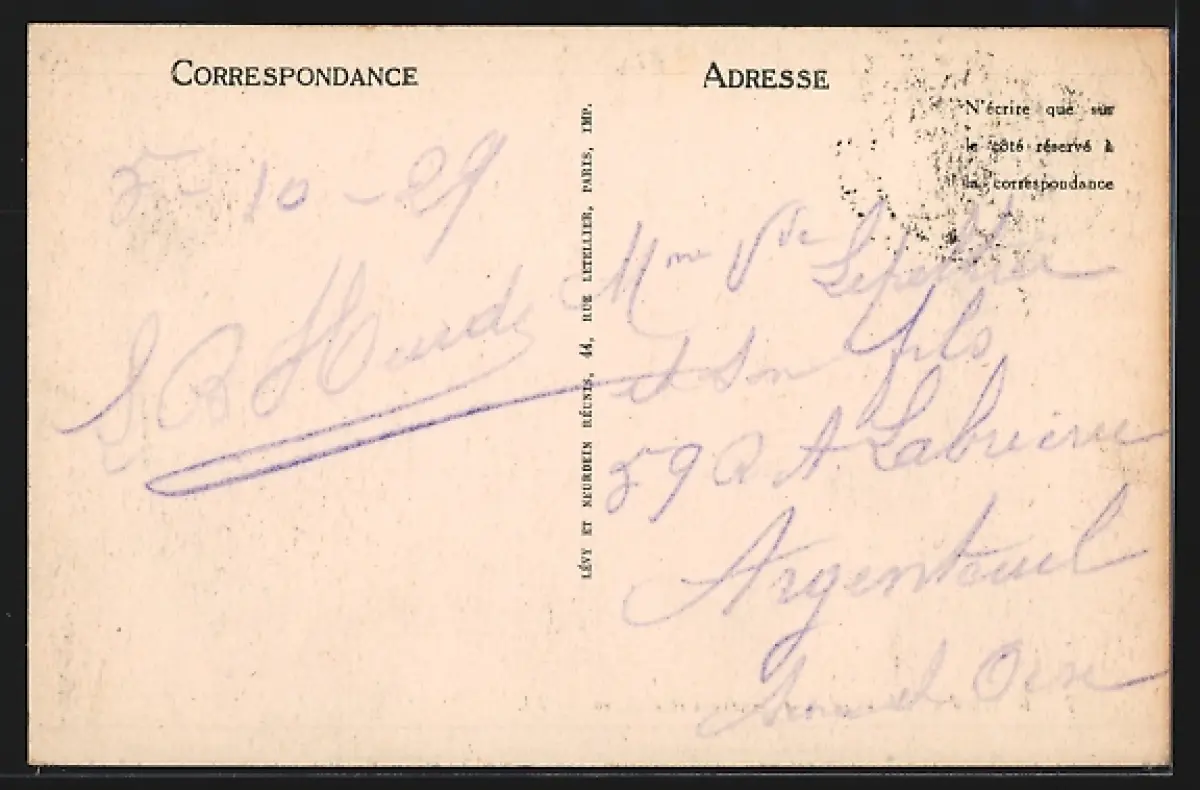 CORRESPONDANCE
5-10-29
ADRESSE
N'écrire que sur
le côté réservé à
la correspondance
LÉVY ET NEURDEIN RÉUNIS, 44, RUE LETELLIER, PARIS, IMP.
Mme Vve
et Son fils
59 R A. Labrieire
Argenteuil
Oise